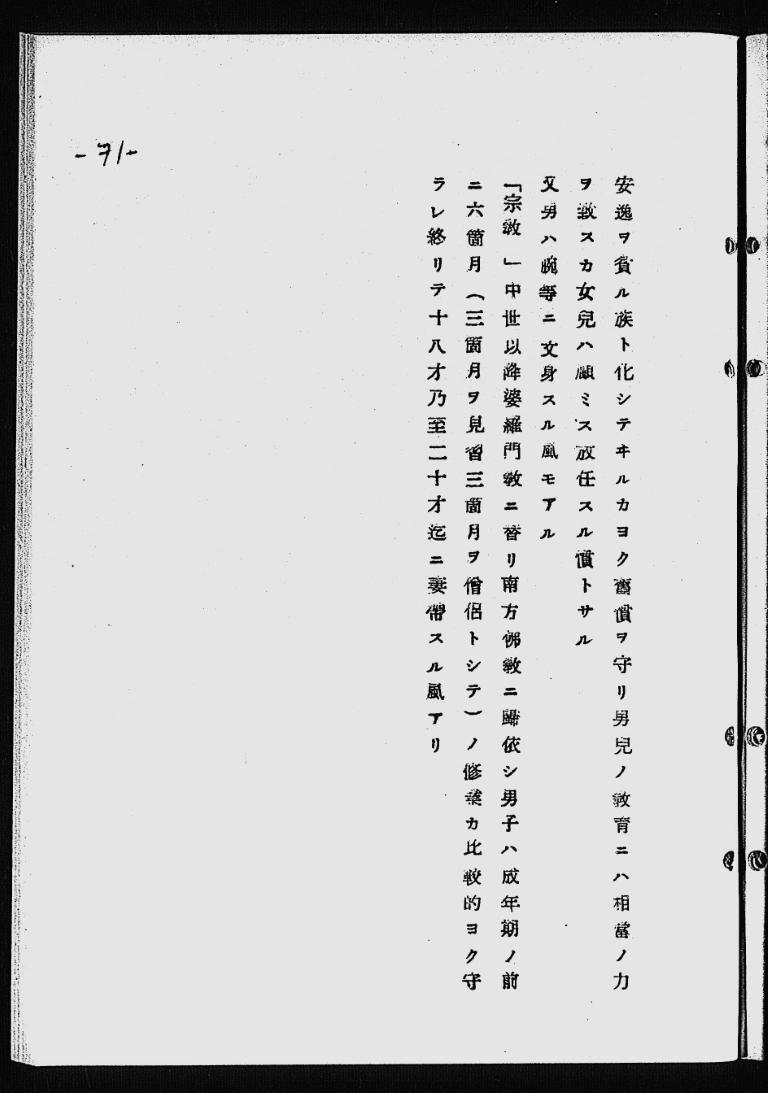 安逸ヲ貪ル族ト化シテヰルカヨク舊慣ヲ守リ男兒ノ敎育ニハ相當ノ力
ヲ致スカ女兒ハ顧ミス放任スル慣トサル
又男ハ腕等ニ文身スル風モアル
「宗敎」中世以降婆羅門敎ニ替リ南方佛敎ニ歸依シ男子ハ成年期ノ前
ニ六箇月(三箇月ヲ見習三箇月ヲ僧侶トシテ)ノ修業カ比較的ヨク守
ラレ終リテ十八才乃至二十才迄ニ妻帶スル風アリ
-71-